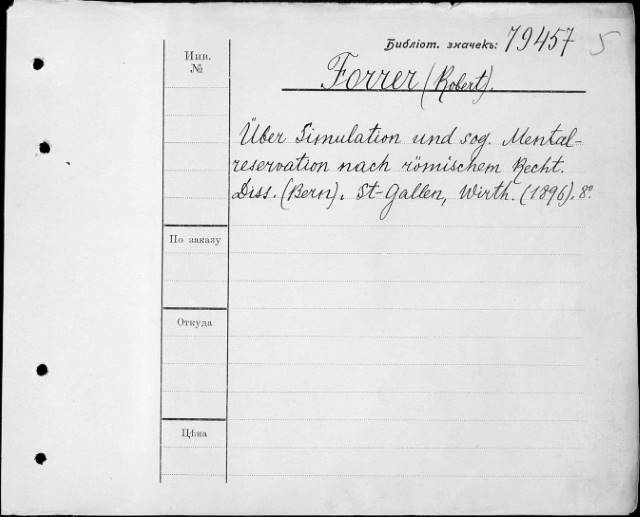 Библіот. значекъ: 79457 5
Инв.
№
Forrer (Robert).
Über Simulation und sog. Mental-
reservation nach römischem Recht.
Diss. (Bern). St-Gallen, Wirth. (1896). 8°
По заказу
Откуда
Цѣна